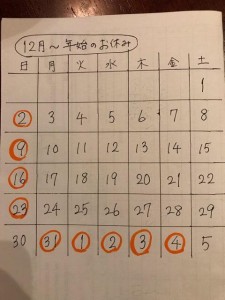 12月～年始のお休み
日 月 火 水 木 金 土
1
2 3 4 5 6 7 8
9 10 11 12 13 14 15
16 17 18 19 20 21 22
23 24 25 26 27 28 29
30 31 1 2 3 4 5